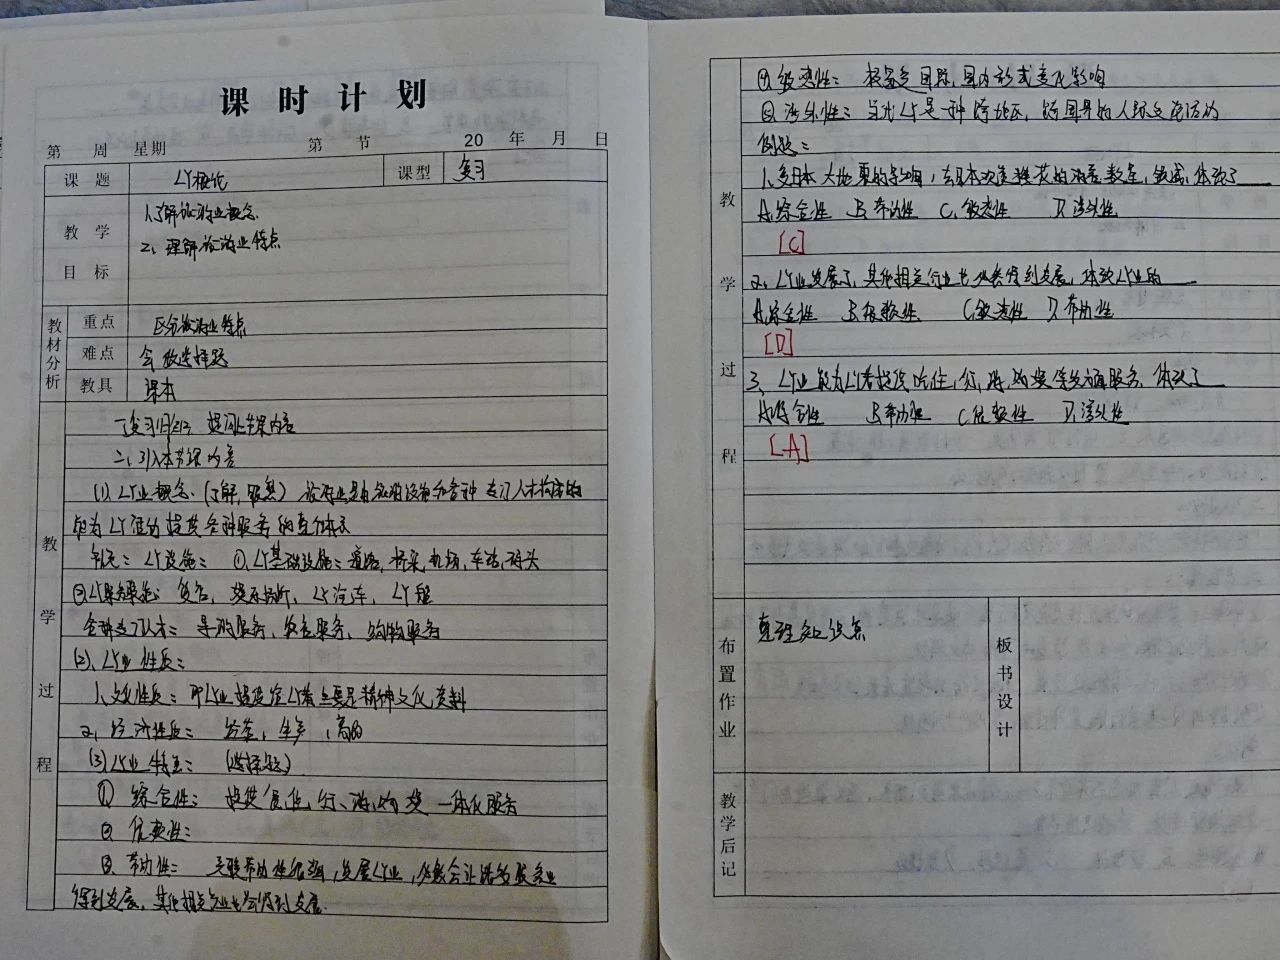 课时计划
第 周 星期 第 节 20 年 月 日
课题 LY概论 课型 复习
教学目标
1、了解旅游业概念.
2、理解旅游业特点
教材分析
重点 区分旅游业特点
难点 会做选择题
教具 课本
教学过程
一、复习归纳 提问上节课内容
二、引入本节课内容
(1) LY业概念.(了解,服务) 旅游业是由旅游设施与各种专门人才构成的
为LY者提供各种服务的整体
补充: LY设施: ①LY基础设施: 道路,桥梁,机场,车站,码头
②LY服务设施: 娱乐场所, LY汽车, LY
各种专门人才: 导游服务, 服务, 购物服务
(2)、LY业性质:
1、文化性质: 即LY业提供给LY者主要是精神文化资料
2、经济性质:
(3)LY业特点: (选择题)
① 综合性: 提供食住,行、游,购娱一体化服务
② 依赖性:
③ 带动性: 关联带动性很强,发展LY业,必然会让
得到发展,其他相关行业也会得到发展.
④敏感性: 国际,国内形式变化影响
⑤涉外性: 当代LY是一种跨地区,跨国界的人际交往活动
例题:
1、受日本大地震的影响,去日本观赏樱花的游客数量锐减,体现了___
A.综合性 B.带动性 C.敏感性 D.涉外性
[C]
2、LY业发展了,其他相关行业也必然得到发展,体现LY业的___
A.综合性 B.依赖性 C.敏感性 D.带动性
[D]
3、LY业能为LY者提供吃住,行,游,购娱等多方面服务,体现了___
A.综合性 B.带动性 C.依赖性 D.涉外性
[A]
布置作业 整理知识点
板书设计
教学后记